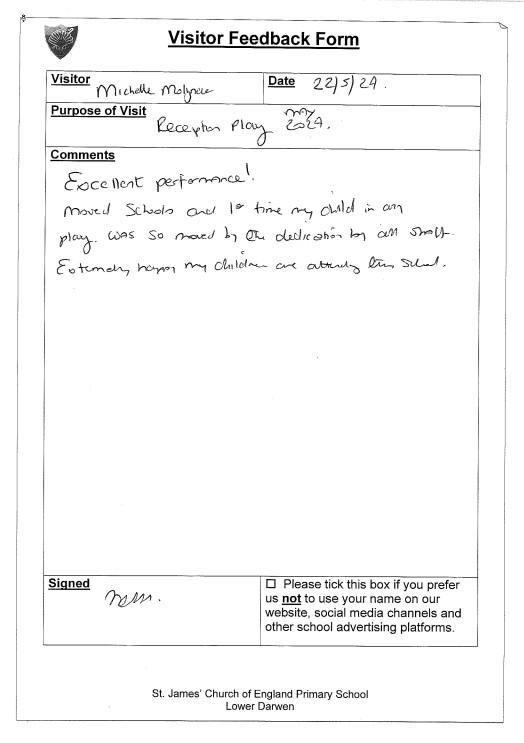 Visitor Feedback Form
Visitor Michelle Date 22/5/24.
Purpose of Visit Reception Play May 2024.
Comments
Excellent performance!
Moved Schools and 1st time my child in any
play. Was so moved by the dedication by all staff.
Extremely happy my children are attending this school.
Signed
☐ Please tick this box if you prefer
us not to use your name on our
website, social media channels and
other school advertising platforms.
St. James' Church of England Primary School
Lower Darwen